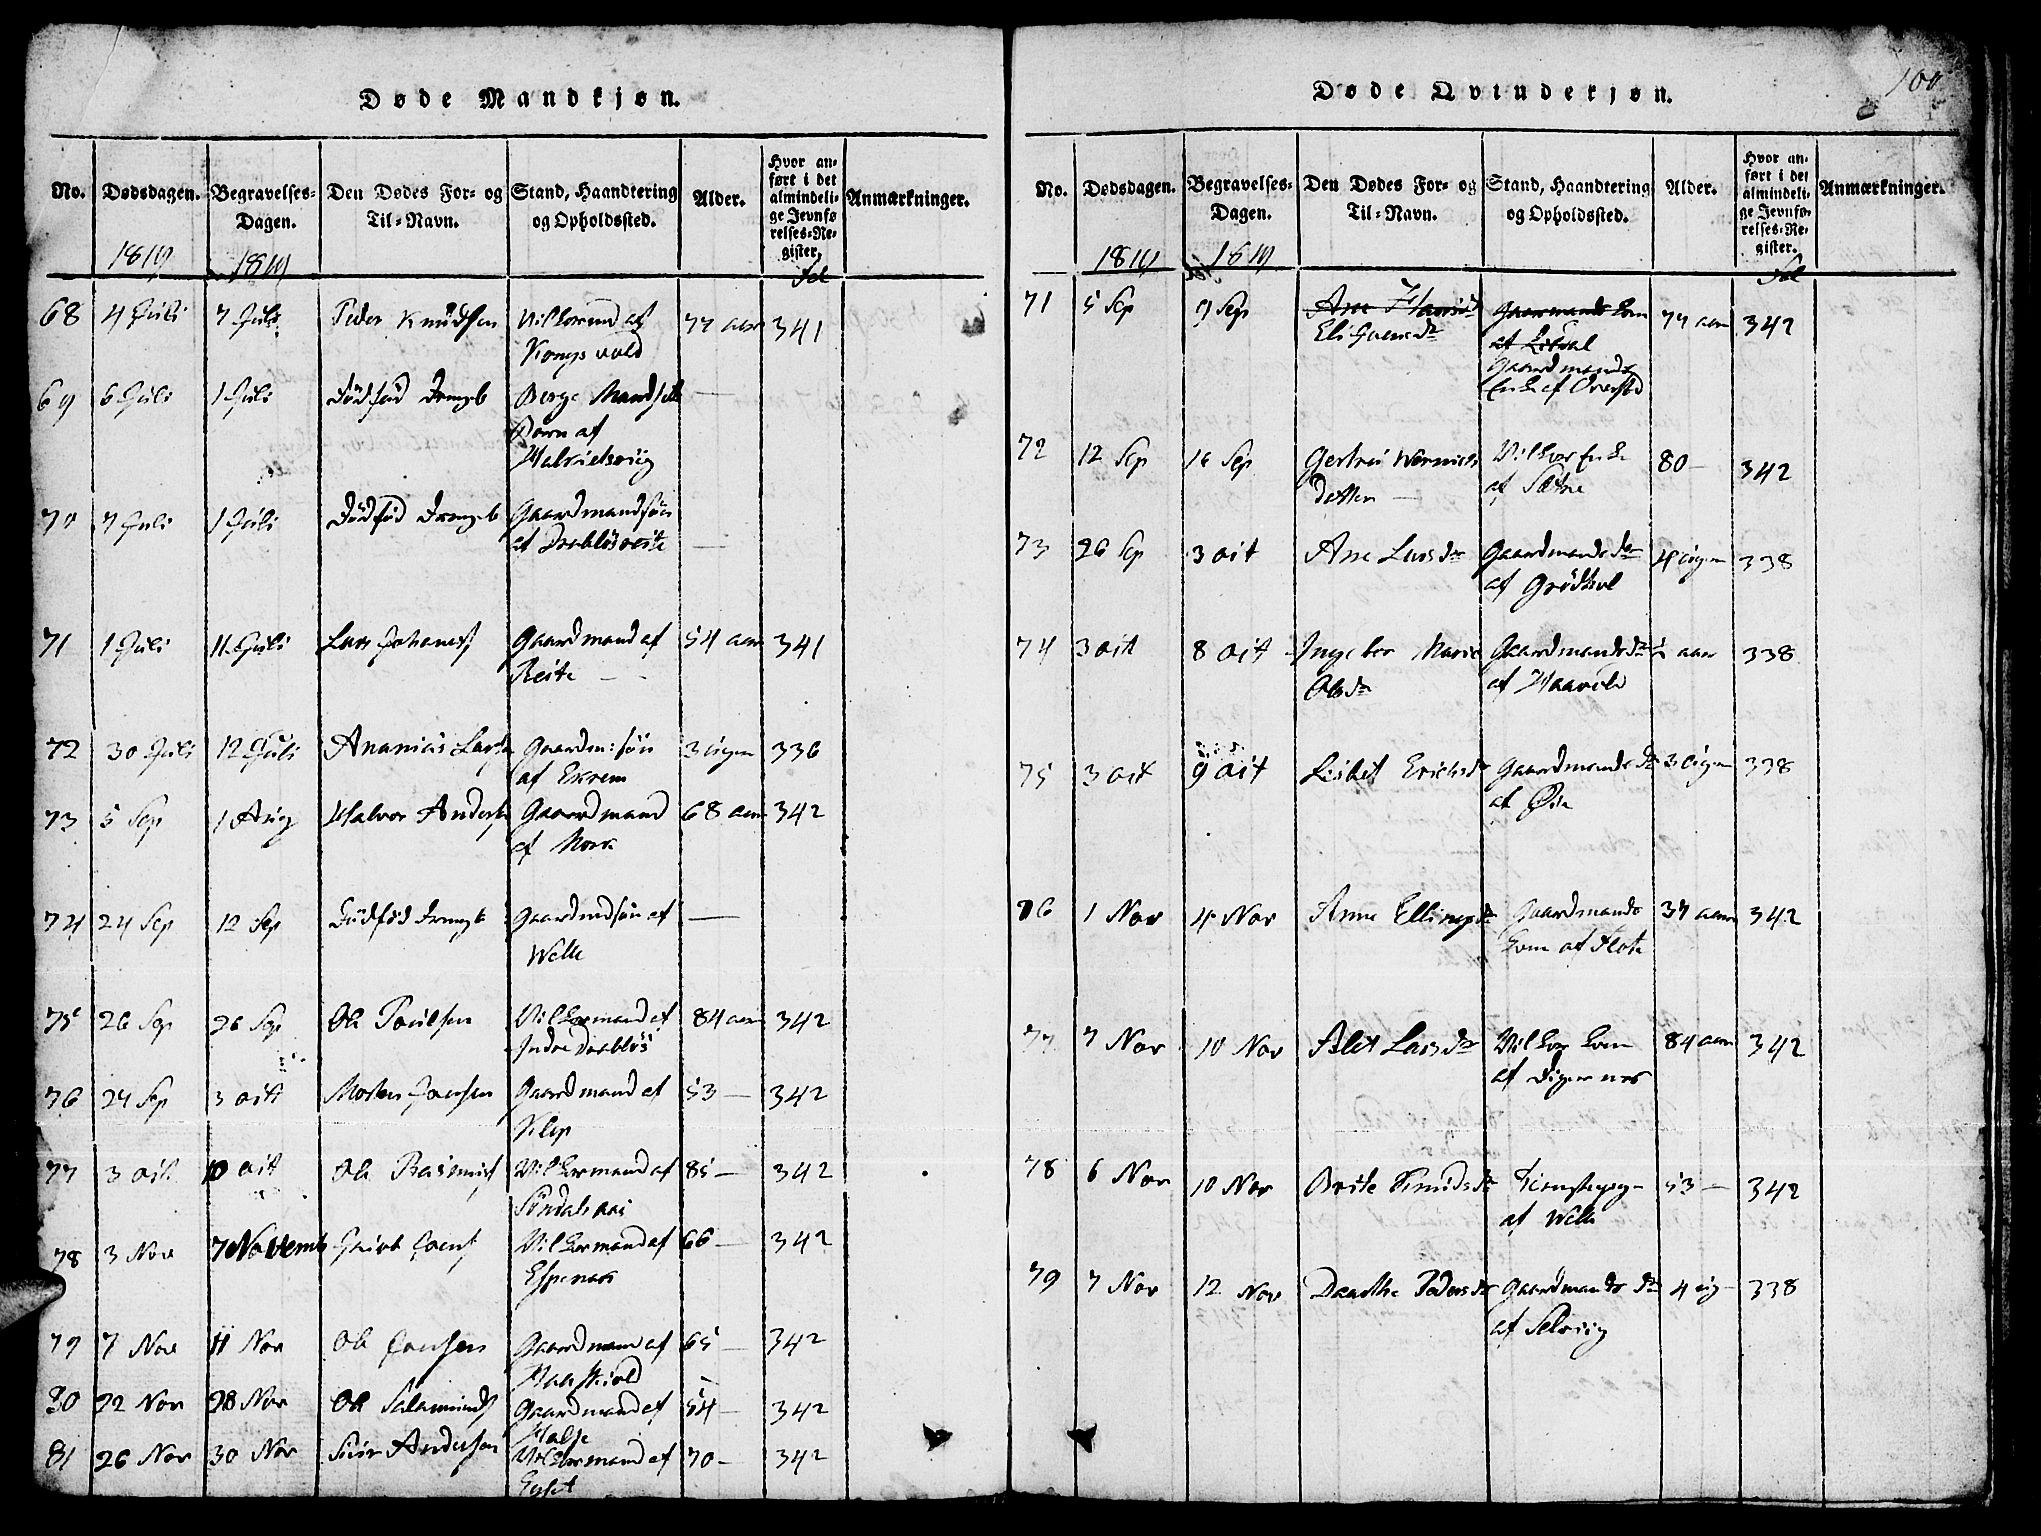 Døde Mandkjøn.
No. Dødsdagen. Begravelses-Dagen. Den Dødes For- og Til-Navn. Stand, Haandtering og Opholdssted. Alder. Hvor anført i det almindelige Jevnførelses-Register. Anmærkninger.
1819 1819 Fol
68 4 Juli 7 Juli Peder Knudsen Vilkormand af 77 aar 341
Kongsvold
69 6 Juli 1 Juli Dödföd Drengb
Born af
70 7 Juli 1 Juli Dödföd Drengb Gaardmandsön
af
71 1 Juli 11 Juli Lars Johans Gaardmand af 54 aar 341
Reite
72 30 Juli 12 Juli Ananias Gaardm: sön 3 336
af Ekrem
73 5 Sep 1 Aug Halvor Anders Gaardmand 68 aar 342
af Mork
74 24 Sep 12 Sep Dödföd Drengb af —
Welle
75 26 Sep 26 Sep Ole Poulsen Vilkormand af 84 aar 342
Indre Drabløs
76 24 Sep 3 oct Morten Gaardmand af 53 — 342
Klep
77 3 oct 10 oct Ole Rasmus Vilkormand af 85 — 342
78 3 Nov 7 Novemb Vilkormand af 66 — 342
Espenes
79 7 Nov 11 Nov Ole Gaardmand af 65 — 342
80 22 Nov 28 Nov Ole Gaardmand af 54 — 342
81 26 Nov 30 Nov Siur Andersen Vilkormand af 70 — 342
Eyset
Døde Qvindekjøn.
100
No. Dødsdagen. Begravelses-Dagen. Den Dødes For- og Til-Navn. Stand, Haandtering og Opholdssted. Alder. Hvor anført i det almindelige Jevnførelses-Register. Anmærkninger.
1819 1819 Fol
71 5 Sep 9 Sep Ane Gaardmands kone 77 aar 342
Eli
Gaardmands
Enke af
72 12 Sep 16 Sep Gertru Vilkor Enke 80 — 342
Datter — af Sætre
73 26 Sep 3 oct Ane Larsdr Gaardmands dr 4 338
af
74 3 oct 8 oct Ingebor Marie Gaardmands dr aar 338
Olsdr af
75 3 oct 9 oct Lisbet Erichsdr Gaardmands dr 3 338
af Øie
76 1 Nov 4 Nov Anne Ellingsdr Gaardmands 37 aar 342
kone af Flote
77 7 Nov 10 Nov Alet Larsdr Vilkor kone 84 aar 342
af Digernes
78 6 Nov 10 Nov Brite Knudsdr 53 — 342
af Welle
79 7 Nov 12 Nov Dorthe Pedersdr Gaardmands dr 4 338
af Selviig